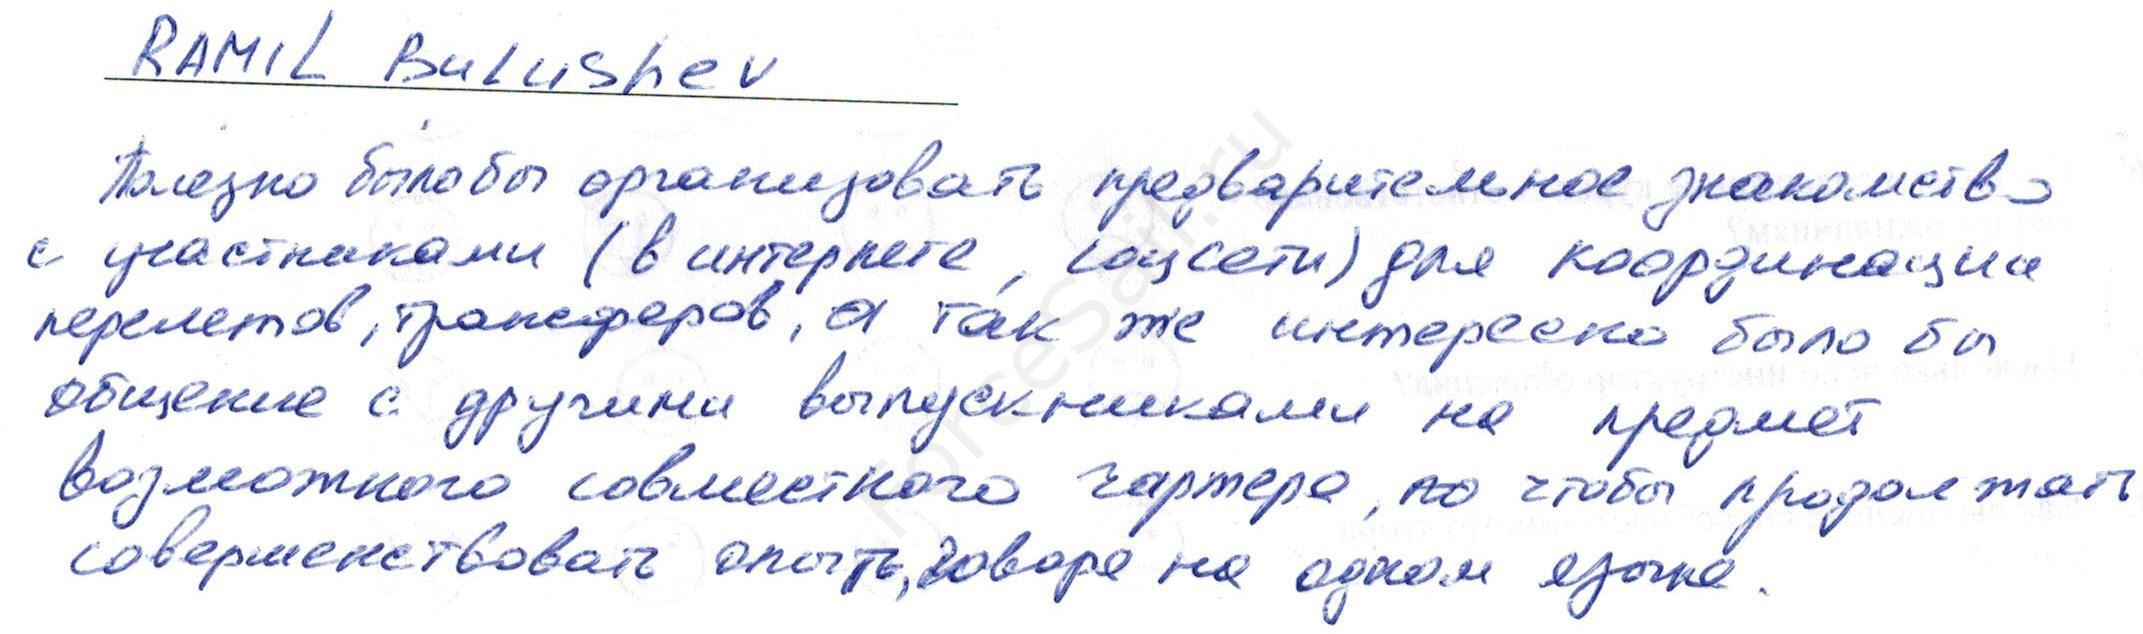 RAMIL Bulushev
Полезно было бы организовать предварительное знакомство
с участниками (в интернете, соцсети) для координации
перелетов, трансферов, а так же интересно было бы
общение с другими выпускниками на предмет
возможного совместного чартера, чтобы продолжать
совершенствовать опыт, говоря на одном языке.
ForceSail.ru